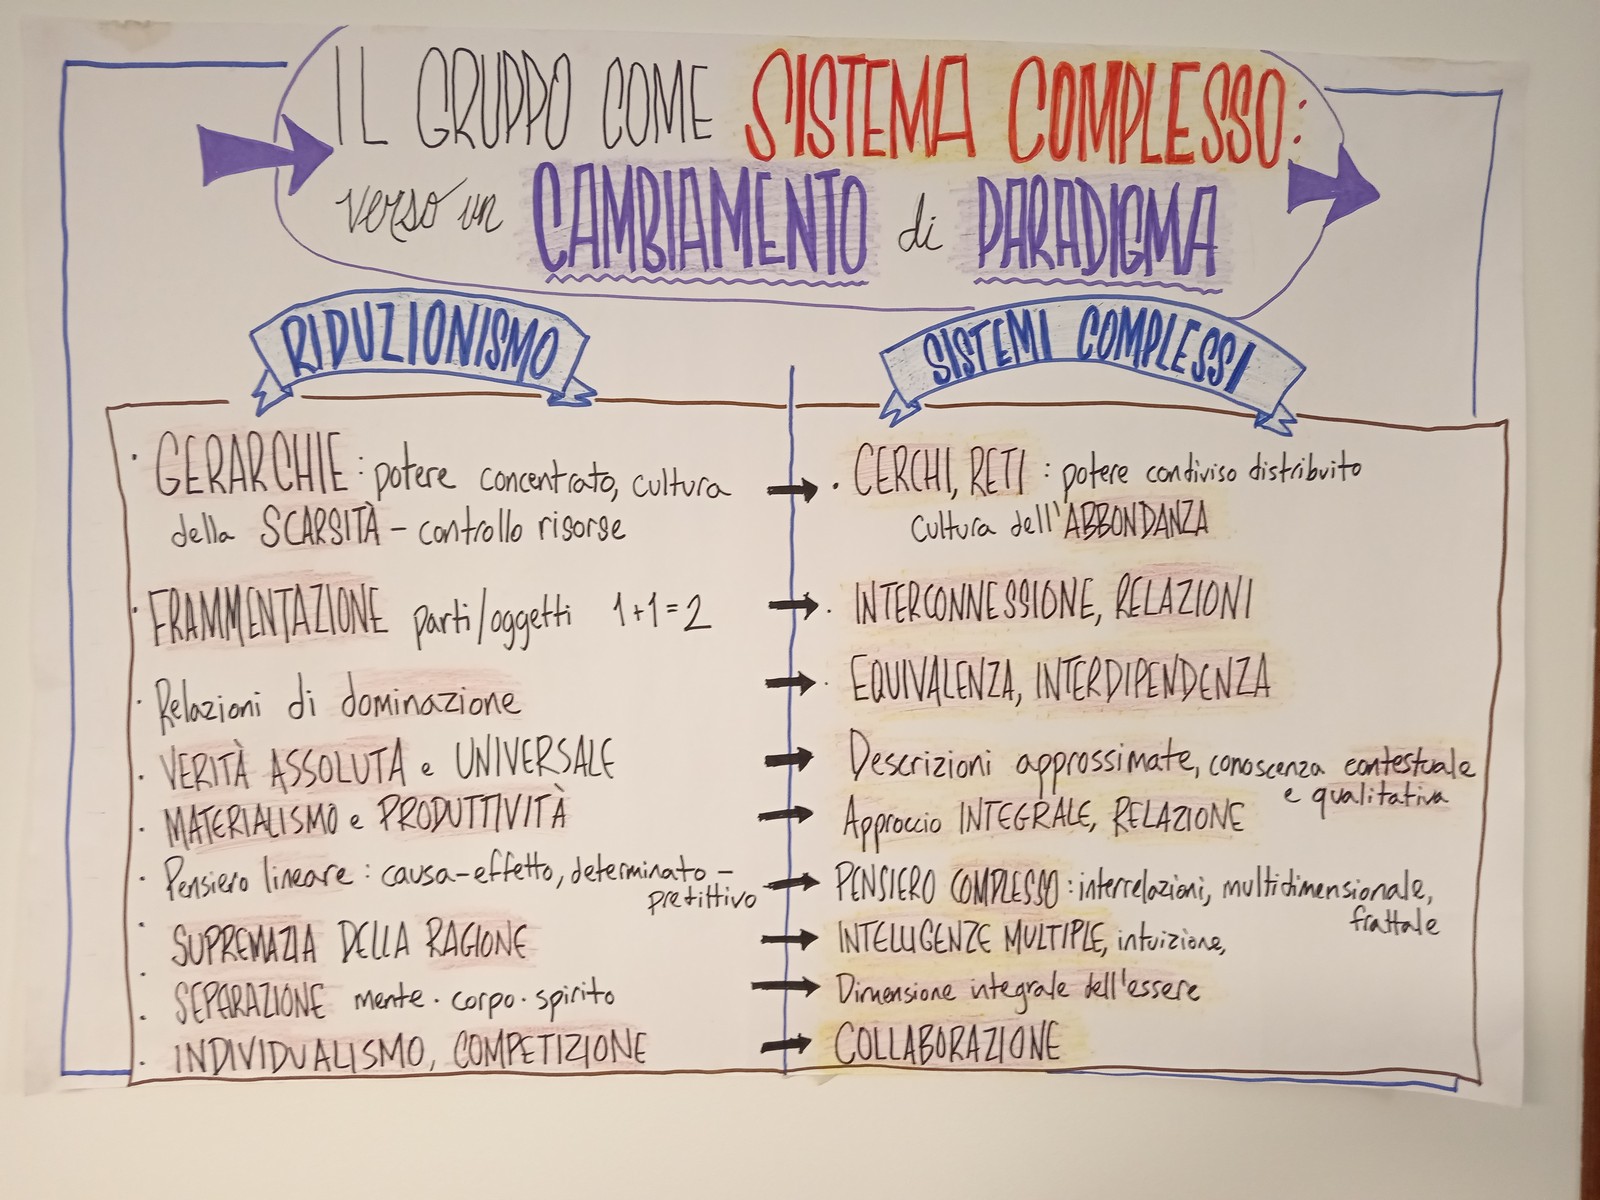 IL GRUPPO COME SISTEMA COMPLESSO:
verso un CAMBIAMENTO di PARADIGMA
RIDUZIONISMO
· GERARCHIE: potere concentrato, cultura
della SCARSITÀ - controllo risorse
· FRAMMENTAZIONE parti/oggetti 1+1=2
· Relazioni di dominazione
· VERITÀ ASSOLUTA e UNIVERSALE
· MATERIALISMO e PRODUTTIVITÀ
· Pensiero lineare: causa-effetto, determinato -
pretittivo
· SUPREMAZIA DELLA RAGIONE
· SEPARAZIONE mente · corpo · spirito
· INDIVIDUALISMO, COMPETIZIONE
SISTEMI COMPLESSI
· CERCHI, RETI: potere condiviso distribuito
cultura dell'ABBONDANZA
· INTERCONNESSIONE, RELAZIONI
· EQUIVALENZA, INTERDIPENDENZA
Descrizioni approssimate, conoscenza contestuale
e qualitativa
Approccio INTEGRALE, RELAZIONE
PENSIERO COMPLESSO: interrelazioni, multidimensionale,
frattale
INTELLIGENZE MULTIPLE, intuizione,
Dimensione integrale dell'essere
COLLABORAZIONE